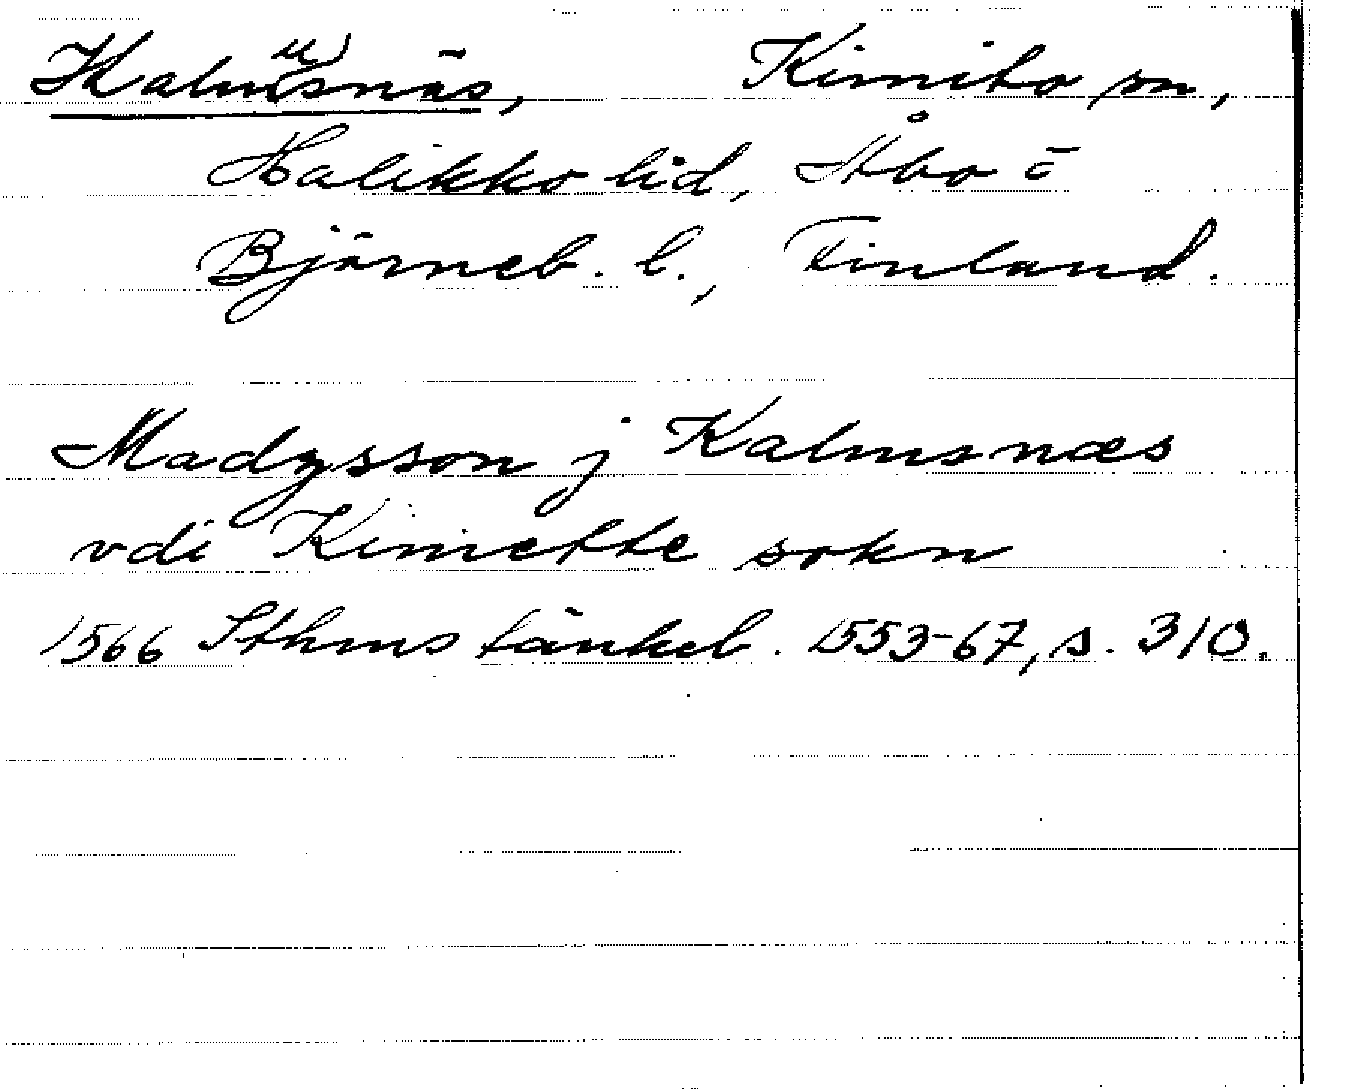 Kalmusnäs, Kimito sn,
Halikko hd, Åbo o
Björneb. l., Finland.
Madzsson j Kalmsnæs
vdi Kimette sokn
1566 Sthms tänkeb. 1553-67, s. 310.